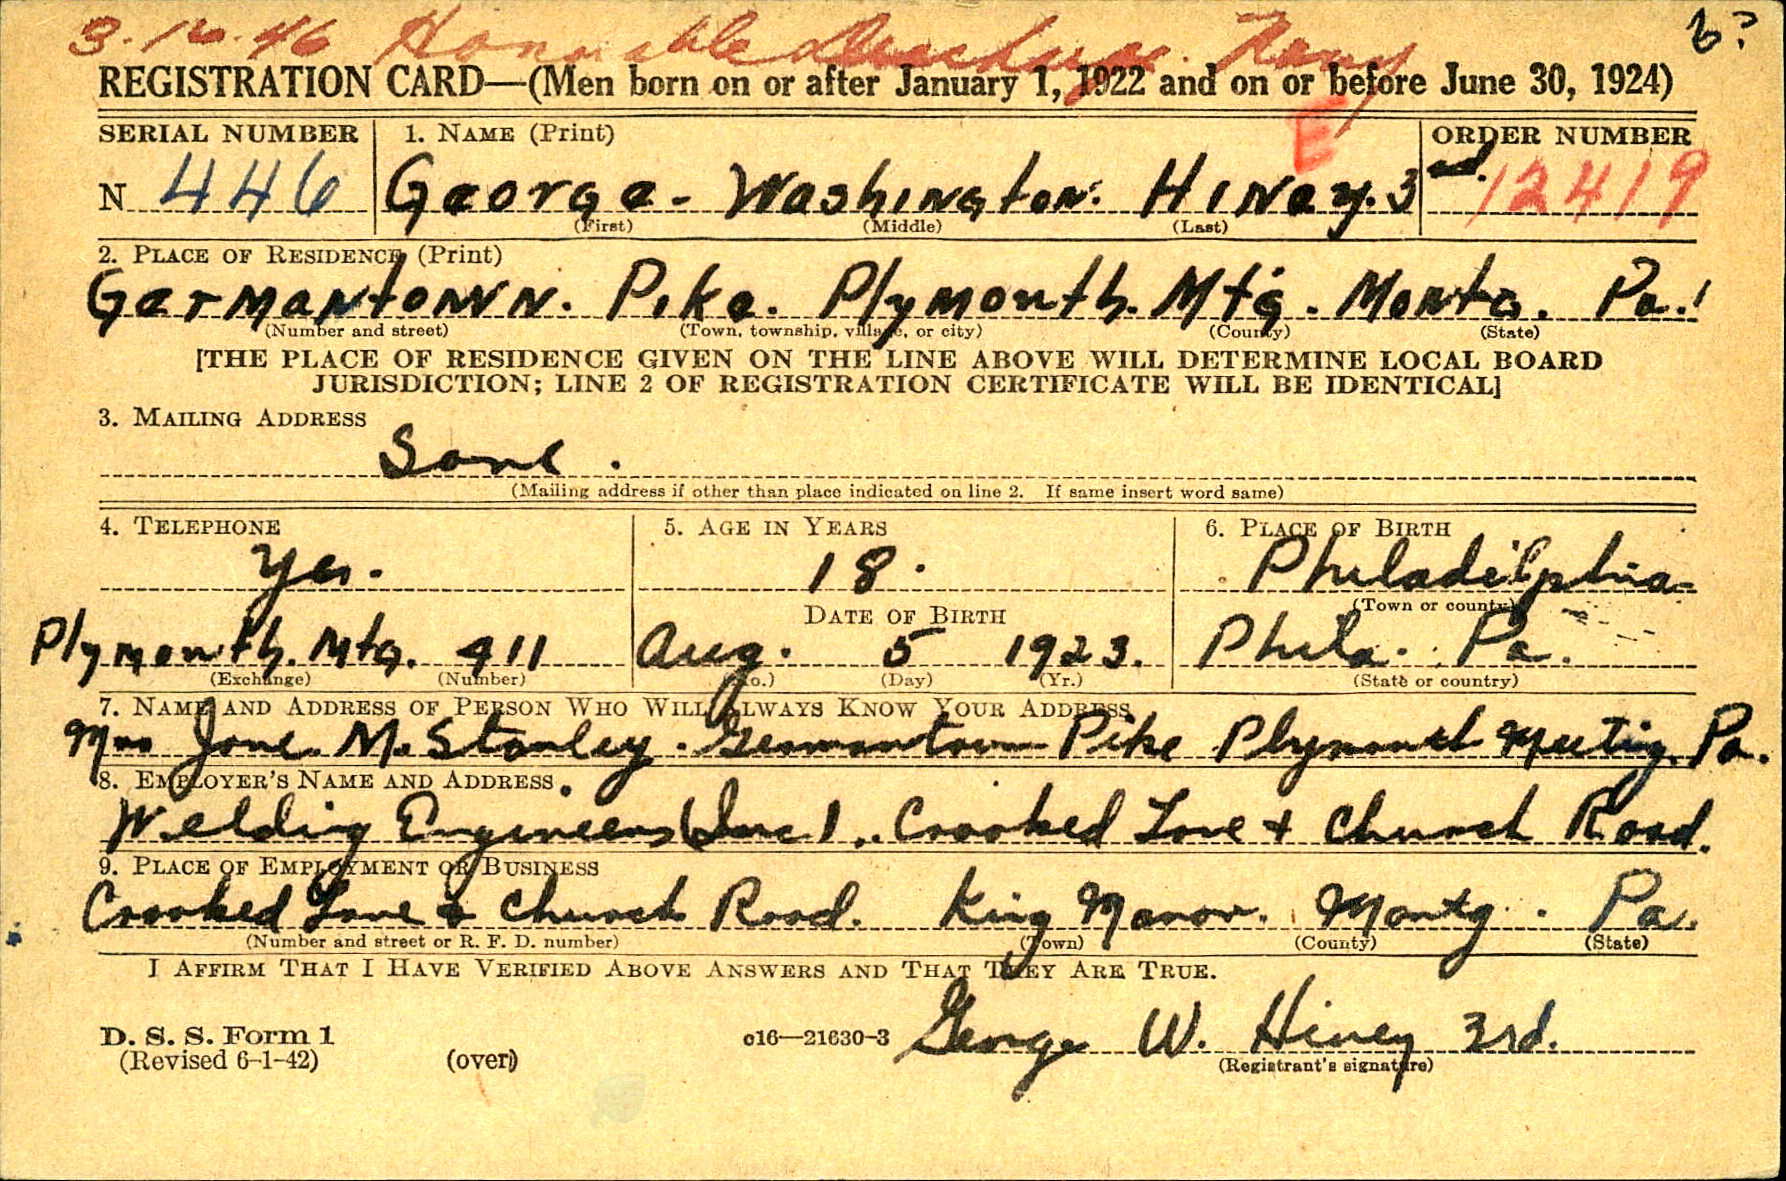 3-16-46 Honorable Discharge. Navy
6?
REGISTRATION CARD—(Men born on or after January 1, 1922 and on or before June 30, 1924)
SERIAL NUMBER 1. NAME (Print) E ORDER NUMBER
N 446 George - Washington. Hiney. 3rd. 12419
(First) (Middle) (Last)
2. PLACE OF RESIDENCE (Print)
Germantown. Pike. Plymouth. Mtg. Montg. Pa.
(Number and street) (Town, township, village, or city) (County) (State)
[THE PLACE OF RESIDENCE GIVEN ON THE LINE ABOVE WILL DETERMINE LOCAL BOARD
JURISDICTION; LINE 2 OF REGISTRATION CERTIFICATE WILL BE IDENTICAL]
3. MAILING ADDRESS
Same.
(Mailing address if other than place indicated on line 2. If same insert word same)
4. TELEPHONE 5. AGE IN YEARS 6. PLACE OF BIRTH
Yes. 18. Philadelphia
DATE OF BIRTH (Town or county)
Plymouth. Mtg. 911 Aug. 5 1923. Phila. Pa.
(Exchange) (Number) (Mo.) (Day) (Yr.) (State or country)
7. NAME AND ADDRESS OF PERSON WHO WILL ALWAYS KNOW YOUR ADDRESS
Mrs Jane M. Stanley. Germantown Pike Plymouth Meeting. Pa.
8. EMPLOYER'S NAME AND ADDRESS
Welding Engineers (Inc). Crooked Lane + Church Road.
9. PLACE OF EMPLOYMENT OR BUSINESS
Crooked Lane & Church Road. King Manor. Montg. Pa.
(Number and street or R. F. D. number) (Town) (County) (State)
I AFFIRM THAT I HAVE VERIFIED ABOVE ANSWERS AND THAT THEY ARE TRUE.
D. S. S. Form 1 c16—21630-3 George W. Hiney 3rd.
(Revised 6-1-42) (over) (Registrant's signature)